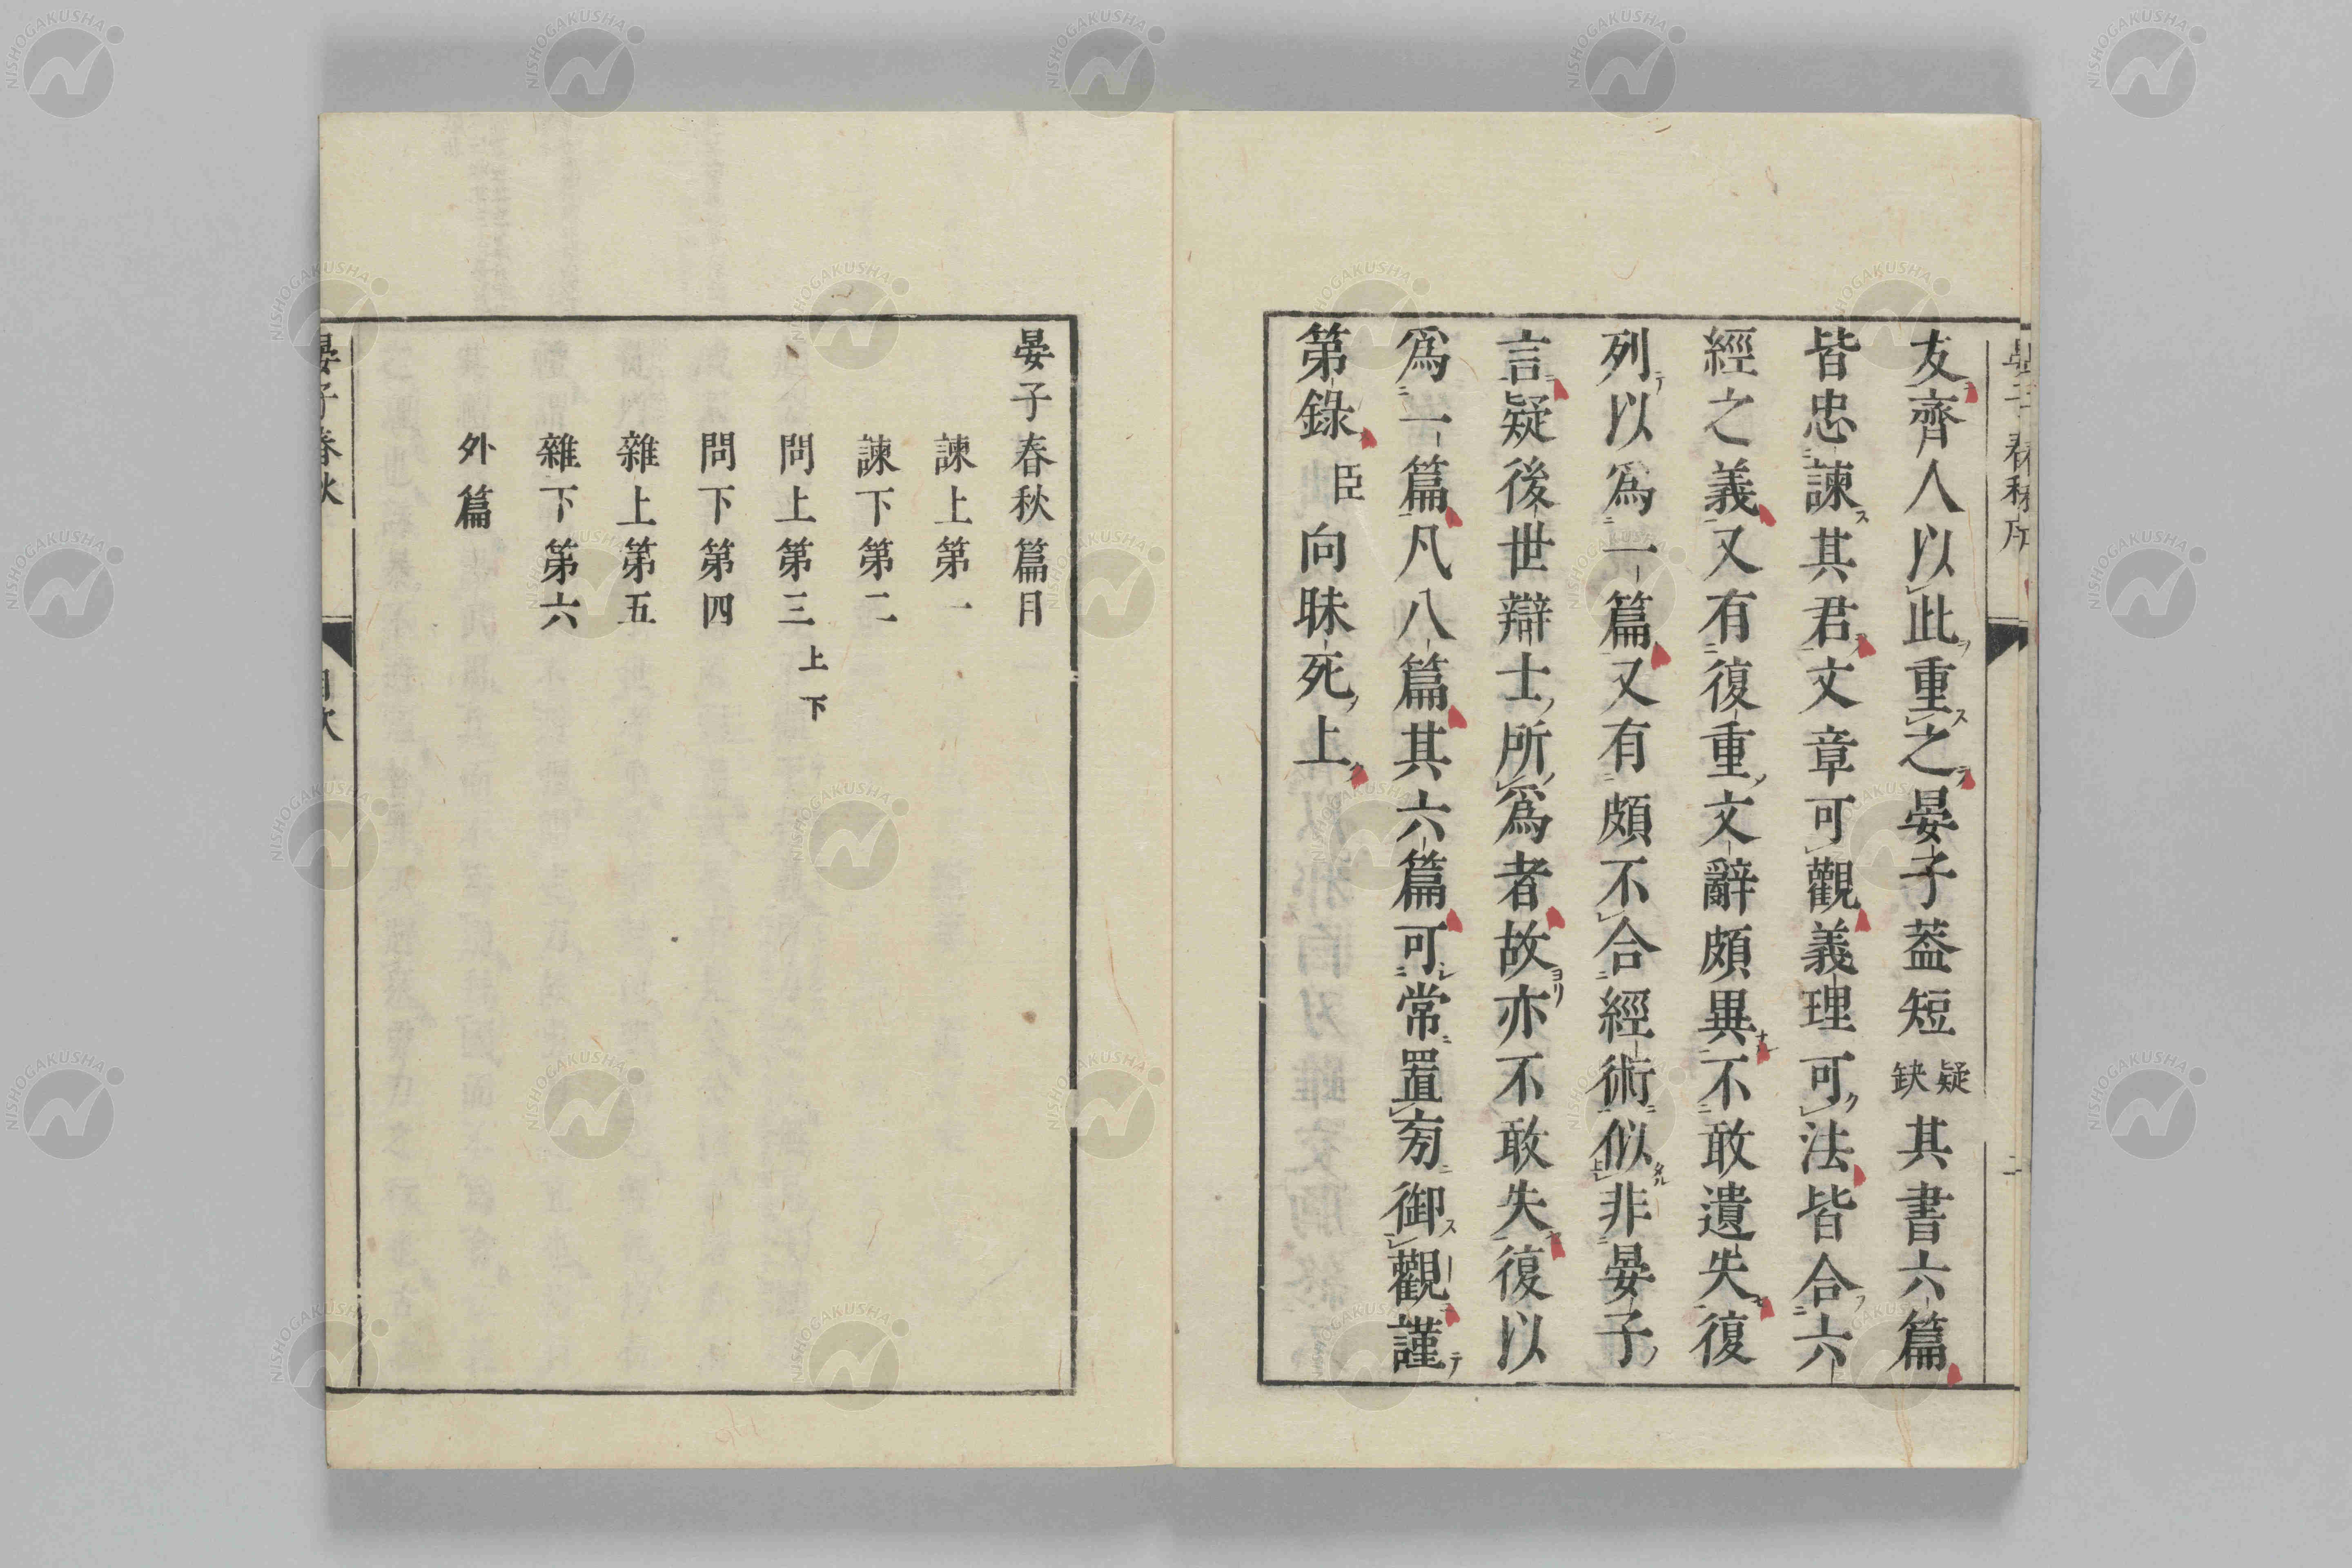 晏子春秋序
友齊人以此重之晏子葢短疑缺其書六篇
皆忠諫其君文章可觀義理可法皆合六
經之義又有復重文辭頗異不敢遺失復
列以爲一篇又有頗不合經術似非晏子
言疑後世辯士所爲者故亦不敢失復以
爲一篇凡八篇其六篇可常置旁御觀謹
第錄臣向昧死上
晏子春秋篇目
諫上第一
諫下第二
問上第三上下
問下第四
雜上第五
雜下第六
外篇
晏子春秋 目次